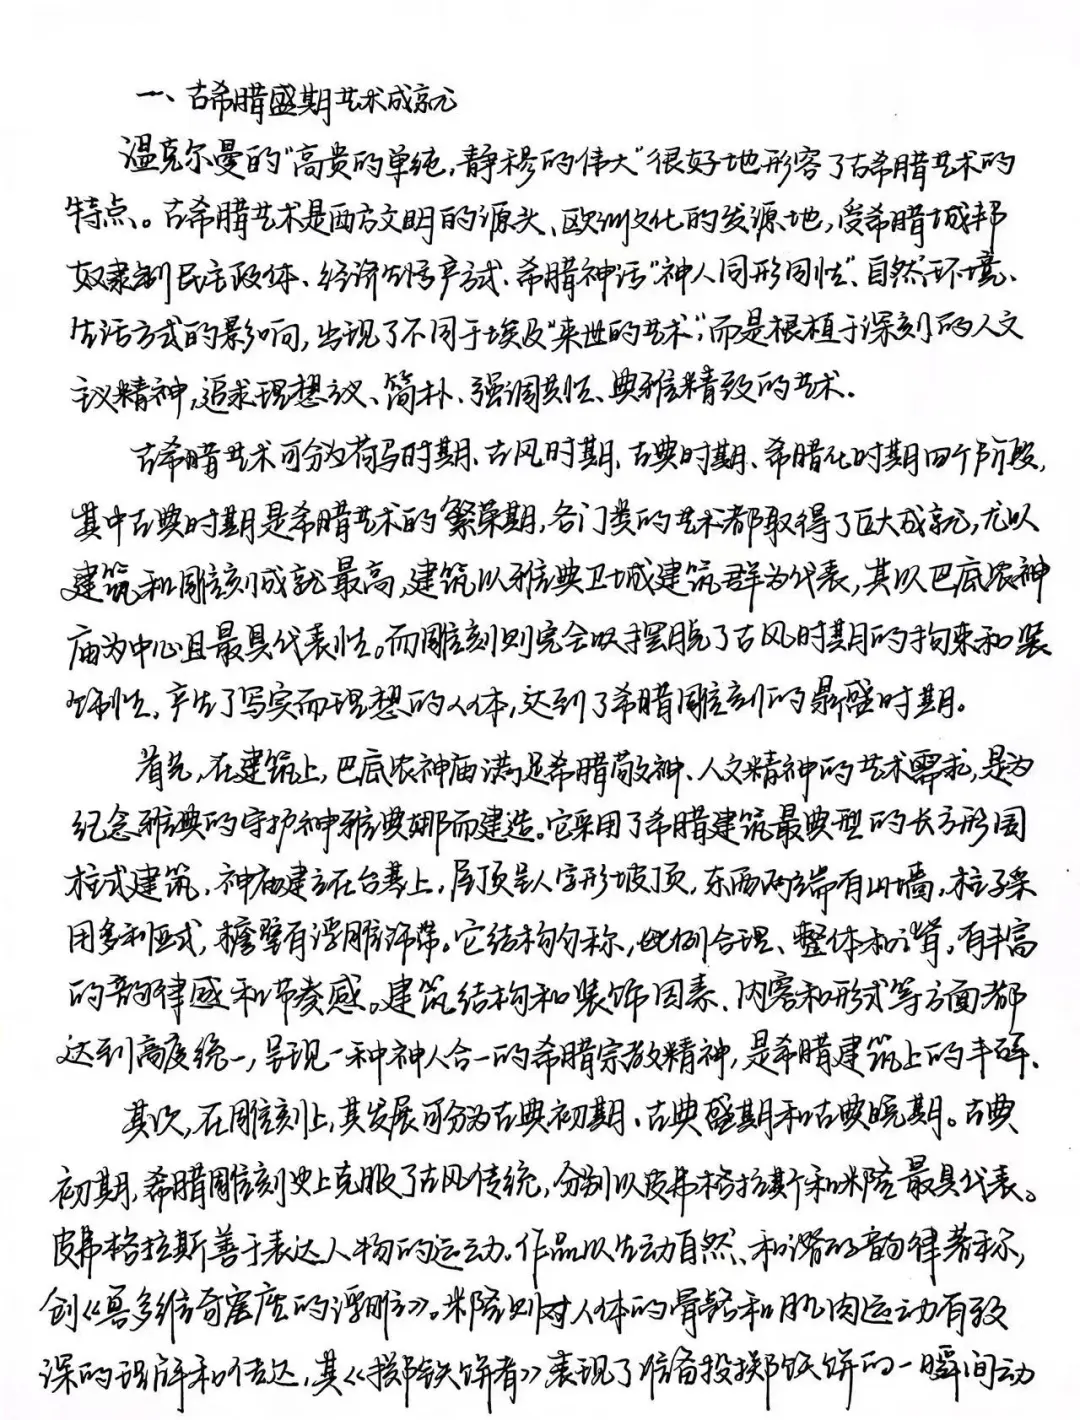 一、古希腊盛期艺术成就
温克尔曼的"高贵的单纯,静穆的伟大"很好地形容了古希腊艺术的
特点。古希腊艺术是西方文明的源头、欧洲文化的发源地,受希腊城邦
奴隶制民主政体、经济生产方式、希腊神话"神人同形同性"、自然环境、
生活方式的影响,出现了不同于埃及"来世的艺术",而是根植于深刻的人文
主义精神,追求理想主义、简朴、强调共性、典雅精致的艺术.
古希腊艺术可分为荷马时期、古风时期、古典时期、希腊化时期四个阶段,
其中古典时期是希腊艺术的繁荣期,各门类的艺术都取得了巨大成就,尤以
建筑和雕刻成就最高,建筑以雅典卫城建筑群为代表,其以巴底农神
庙为中心且最具代表性。而雕刻则完全摆脱了古风时期的拘束和装
饰性,产生了写实而理想的人体,达到了希腊雕刻的鼎盛时期。
首先,在建筑上,巴底农神庙满足希腊敬神、人文精神的艺术需求,是为
纪念雅典的守护神雅典娜而建造。它采用了希腊建筑最典型的长方形围
柱式建筑,神庙建立在台基上,屋顶呈人字形坡顶,东西两端有山墙,柱子采
用多利亚式,檐壁有浮雕饰带。它结构匀称,比例合理、整体和谐,有丰富
的韵律感和节奏感。建筑结构和装饰因素、内容和形式等方面都
达到高度统一,呈现一种神人合一的希腊宗教精神,是希腊建筑上的丰碑.
其次,在雕刻上,其发展可分为古典初期、古典盛期和古典晚期。古典
初期,希腊雕刻史上克服了古风传统,分别以皮弗格拉斯和米隆最具代表。
皮弗格拉斯善于表达人物的运动,作品以生动自然、和谐的韵律著称,
创《鲁多维奇宝座的浮雕》。米隆则对人体的骨骼和肌肉运动有较
深的理解和传达,其《掷铁饼者》表现了准备投掷铁饼的一瞬间动